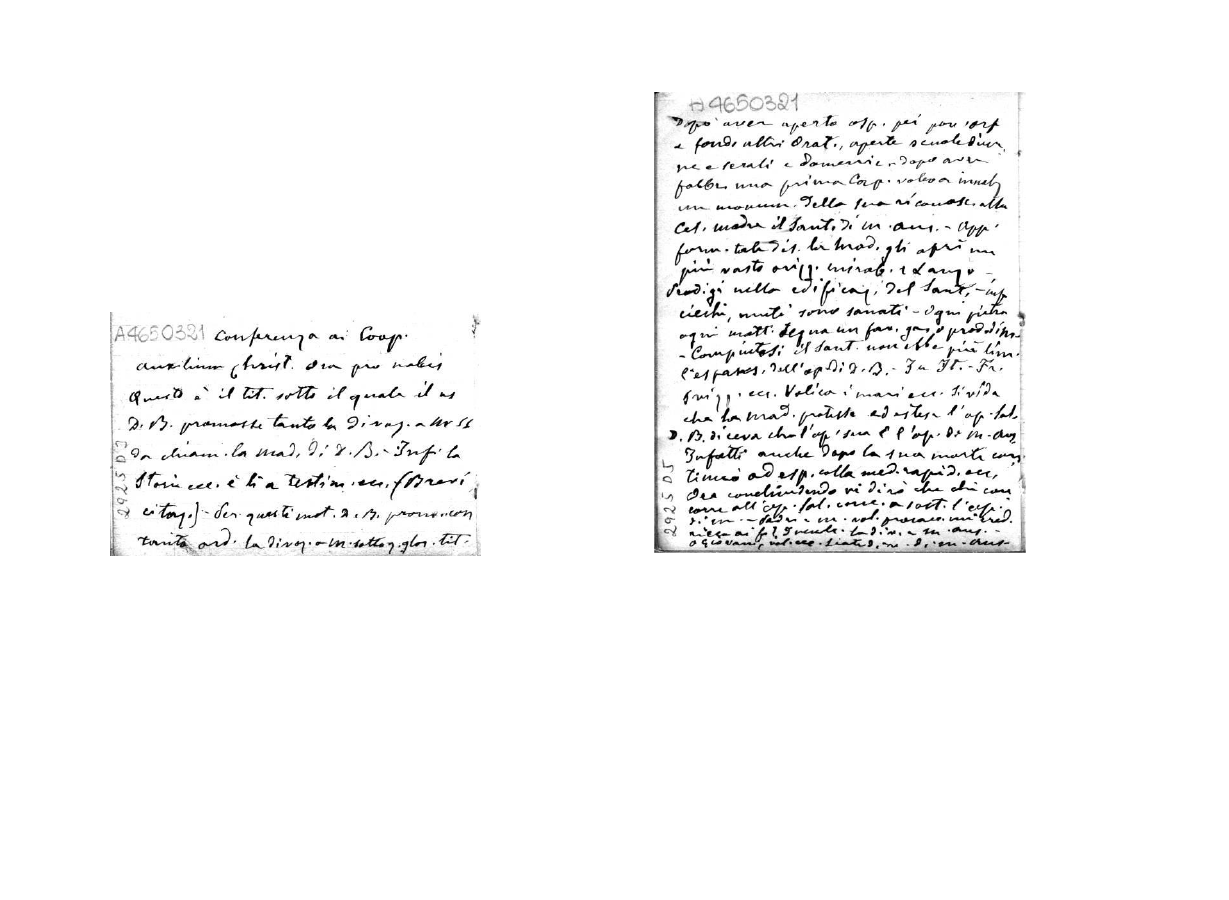 A4650321 Conferenza ai Coop.
auxilium Christ. Ora pro nobis
Questo è il tit. sotto il quale il
D. B. promosse tanto la divoz. a M SS
da chiam. la mad. di D. B. - Infi la
Storia ecc. è lì a testim. ecc. (Brevi
citaz.) - Per questi mot. D. B. promo. con
tanto ard. la divoz. a M. sotto q. glor. tit.
2925 D5
A4650321
Dopo aver aperto osp. pei pov. orf
e fond. altri Orat., aperte scuole diur
ne e serali e domenic. dopo aver
fabbr. una prima Cap. voleva innalz
un monum. della sua riconosc. alla
Cel. madre il Sant. di M. aus. - App.
form. tale dis. la Mad. gli aprì un
più vasto orizz. mirab. e
Prodigi nella edificaz. del Sant. - inf
ciechi, muti sono sanati - Ogni pietra
ogni matt. segna un fav. gaz. o prod. di
- Compiutosi il Sant. non ebbe più lim.
l'espans. dell'op. di D. B. - In It. - Fr.
Svizz. ecc. Valica i mari ecc. Si vide
che la Mad. protesse ed estese l'op. sal.
D. B. diceva che l'op. sua è l'op. di M. aus
Infatti anche dopo la sua morte con
tinuò ad esp. colla med. rapid. ecc.
Ora conchiudendo vi dirò che chi con
corre all'op. sal. conc. a sost. l'op.
di M. - Padri e M. vol. procac. un' ered.
ricca ai fi? Inculc. la div. a M. aus. -
o Giovani, vol. ecc. siate div. di M. Aus
2925 D5